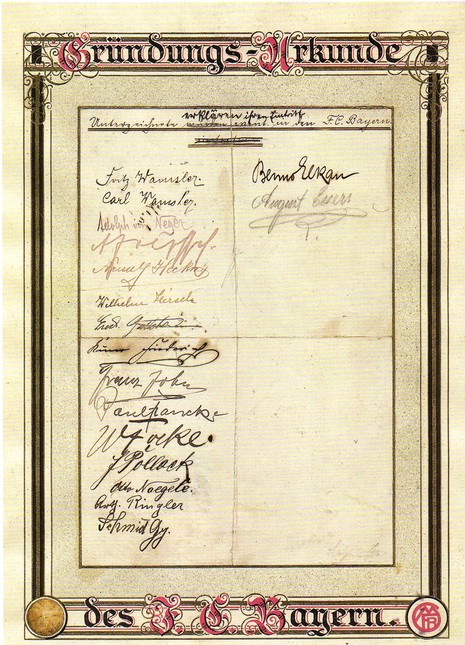 Gründungs-Urkunde
erklären ihren Eintritt
Unterzeichnete in den F.C. Bayern.
Fritz Wamsler.
Carl Wamsler.
Benno Elkan
August Evers
Adolph Neser
Wilhelm Hirsch
Kuno Friederich
Franz John
Paul Francke
W Focke.
J Pollack
Otto Naegele.
Arth. Ringler
Schmid Gg.
des F. C. Bayern.